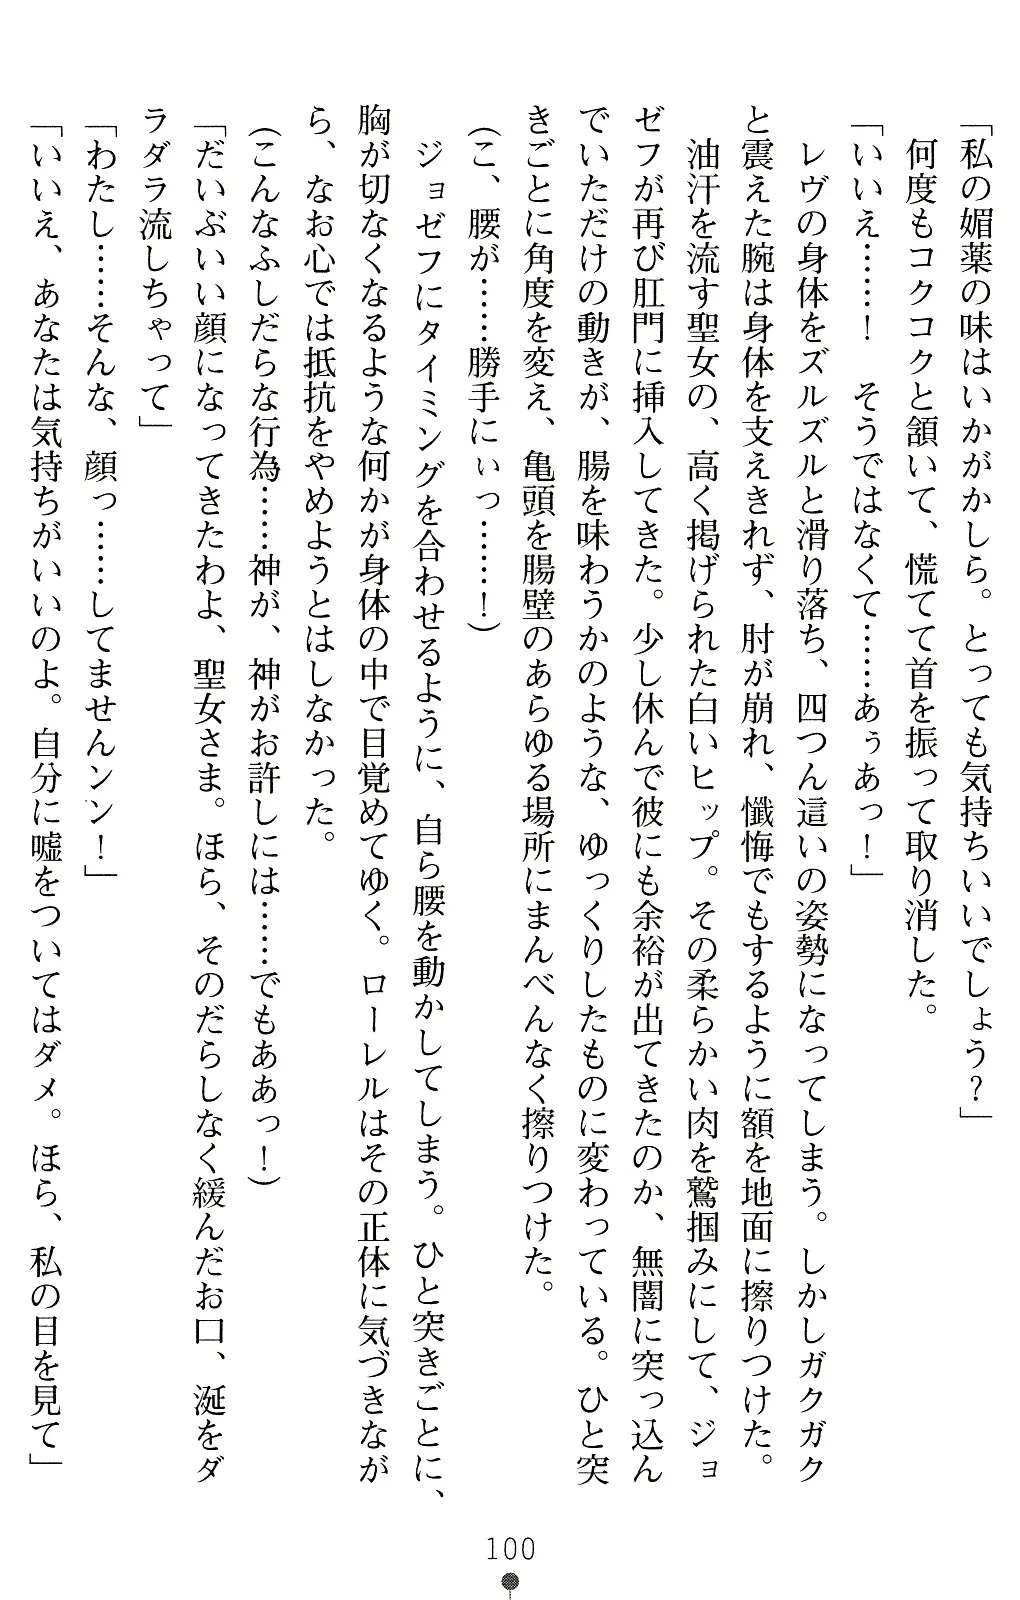 「私の媚薬の味はいかがかしら。とっても気持ちいいでしょう？」
何度もコクコクと頷いて、慌てて首を振って取り消した。
「いいえ……！　そうではなくて……あぅあっ！」
レヴの身体をズルズルと滑り落ち、四つん這いの姿勢になってしまう。しかしガクガク
と震えた腕は身体を支えきれず、肘が崩れ、懺悔でもするように額を地面に擦りつけた。
油汗を流す聖女の、高く掲げられた白いヒップ。その柔らかい肉を鷲掴みにして、ジョ
ゼフが再び肛門に挿入してきた。少し休んで彼にも余裕が出てきたのか、無闇に突っ込ん
でいただけの動きが、腸を味わうかのような、ゆっくりしたものに変わっている。ひと突
きごとに角度を変え、亀頭を腸壁のあらゆる場所にまんべんなく擦りつけた。
（こ、腰が……勝手にぃっ……！）
ジョゼフにタイミングを合わせるように、自ら腰を動かしてしまう。ひと突きごとに、
胸が切なくなるような何かが身体の中で目覚めてゆく。ローレルはその正体に気づきなが
ら、なお心では抵抗をやめようとはしなかった。
（こんなふしだらな行為……神が、神がお許しには……でもああっ！）
「だいぶいい顔になってきたわよ、聖女さま。ほら、そのだらしなく緩んだお口、涎をダ
ラダラ流しちゃって」
「わたし……そんな、顔っ……してませんンン！」
「いいえ、あなたは気持ちがいいのよ。自分に嘘をついてはダメ。ほら、私の目を見て」
100